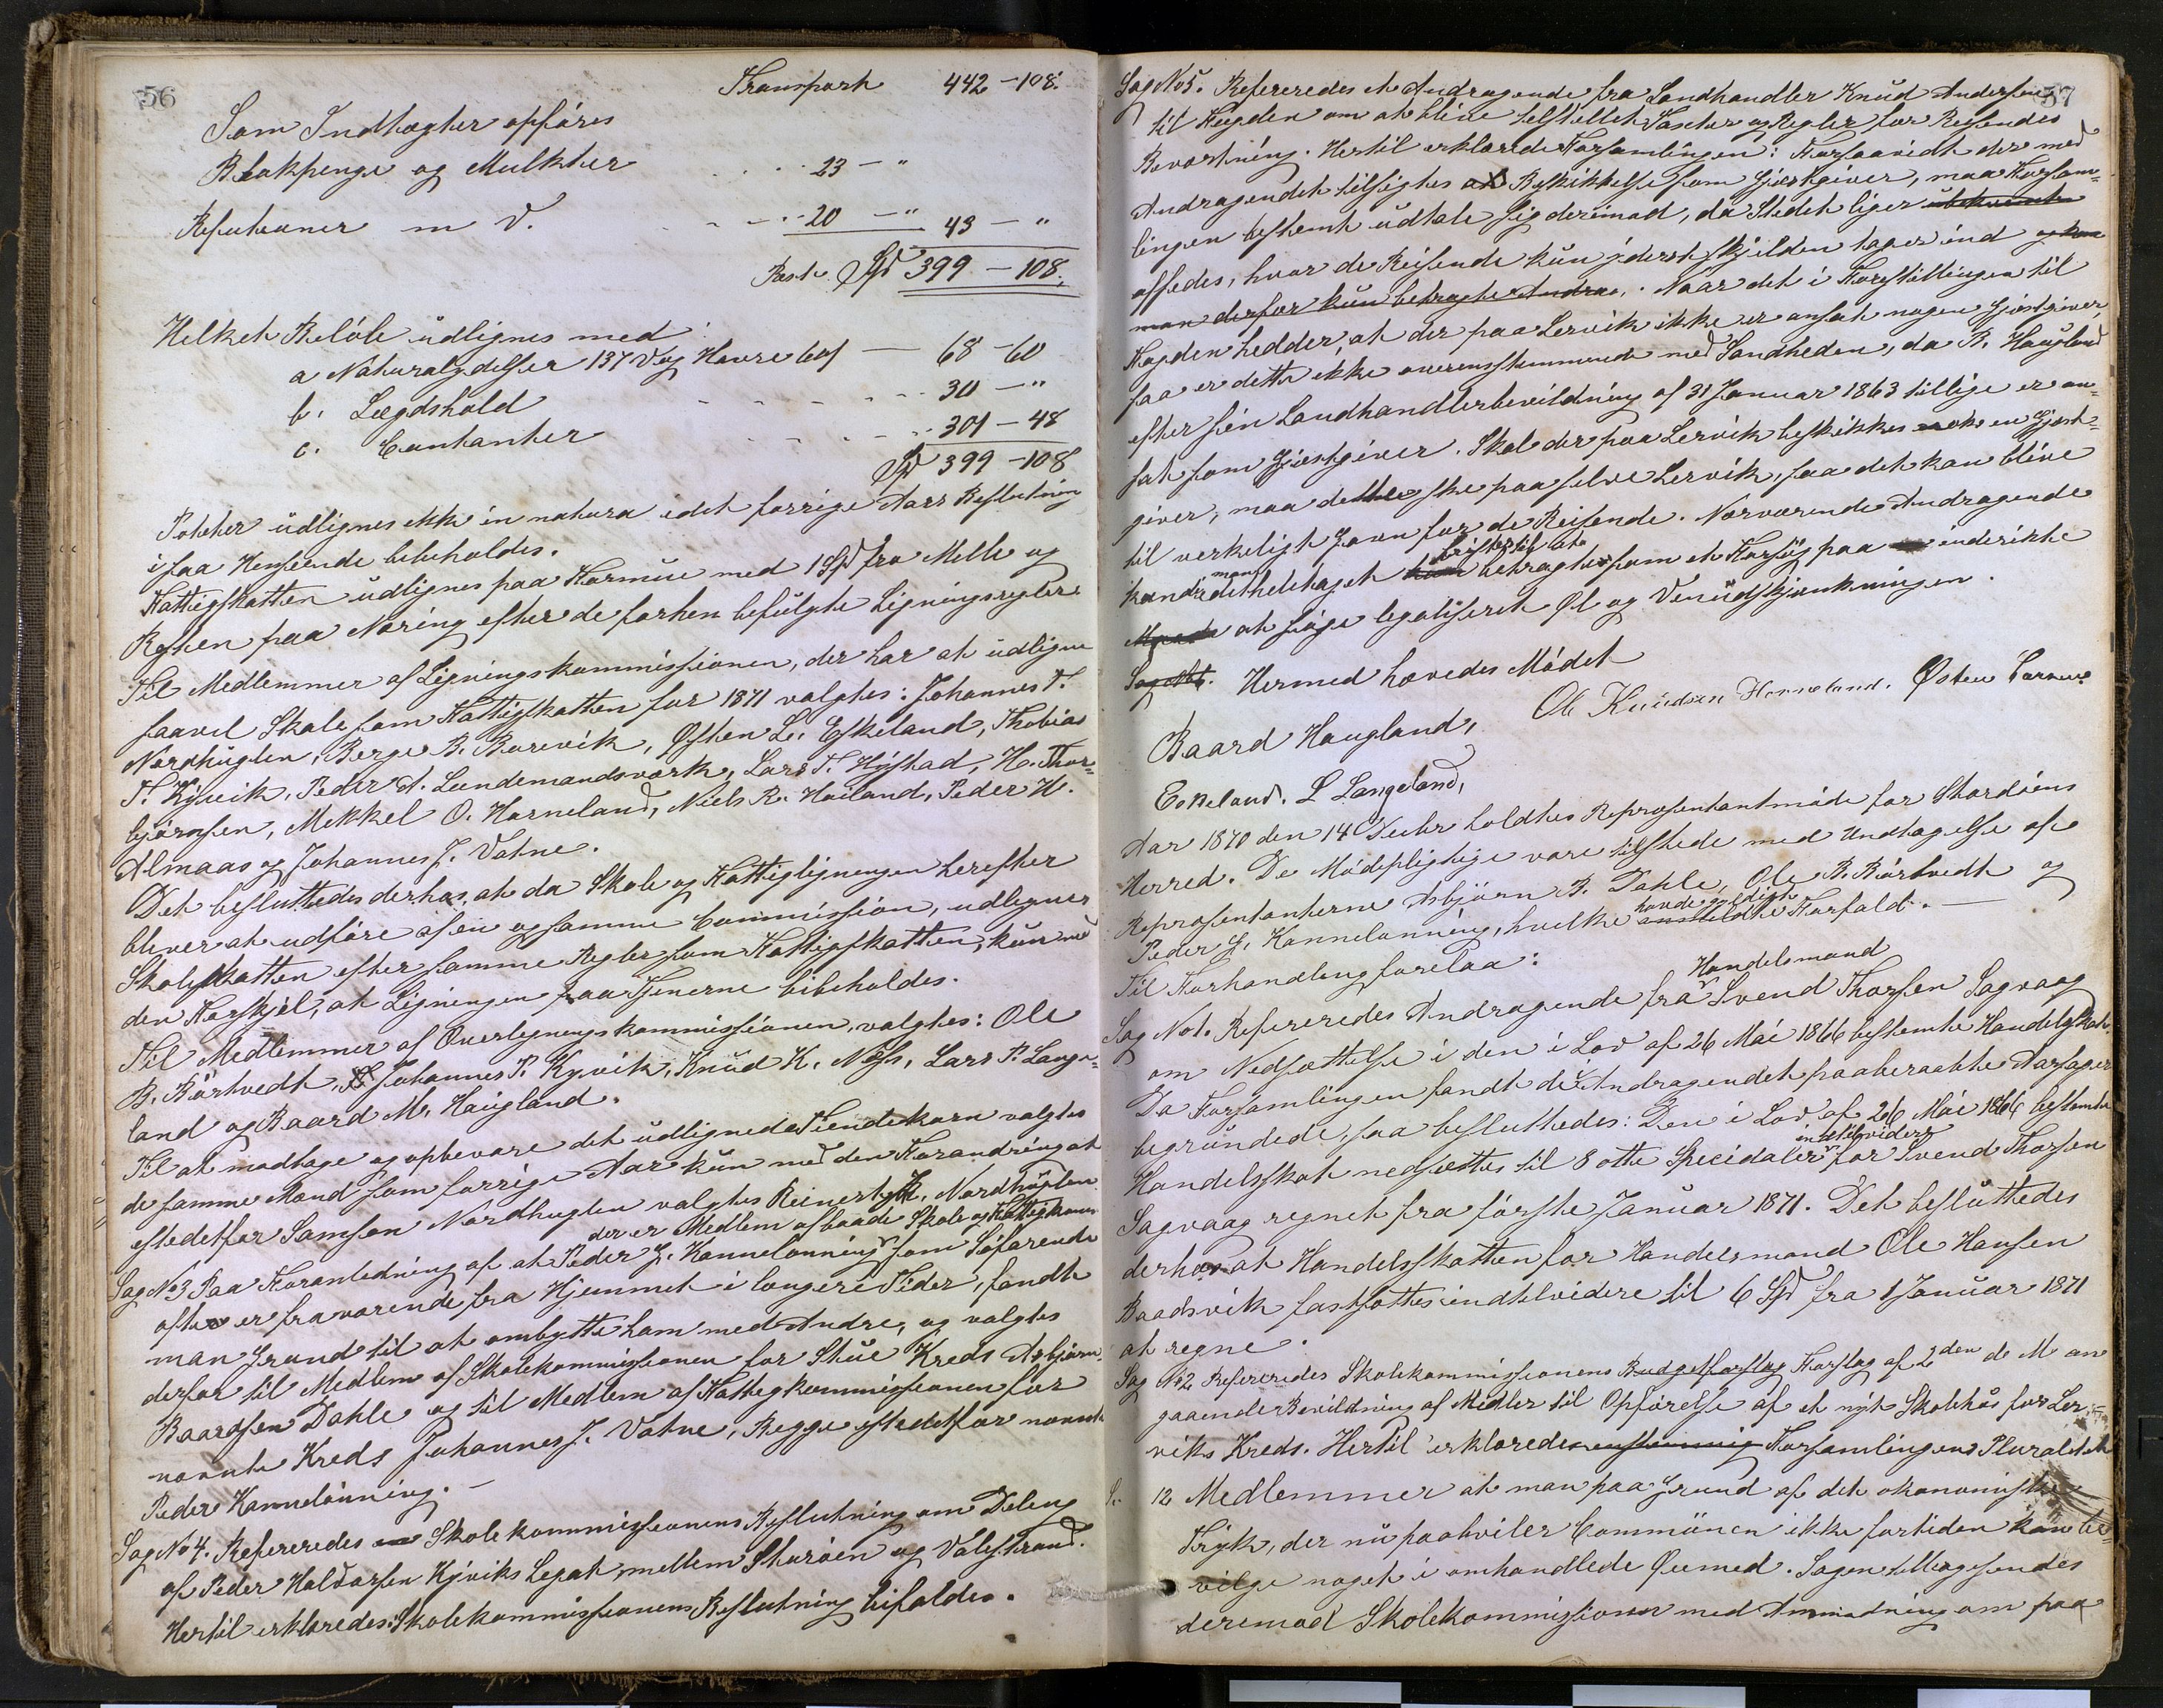 56
Transport 442 - 108.
Som Indtægter opføres
Brokpenge og Mulkter . . . 23 - "
Refusioner m V. - - - - 20 - " 43 - "
Rest Spd 399 - 108.
Hvilket Beløb udlignes med:
a Naturalydelser 137 Vog Havre 60 s — 68 - 60
b. Lægdshold - - - - - - - 30 - "
c. Contanter - - - - - - 301 - 48
Spd 399 - 108
Poteter udlignes ikke in natura idet forrige Aars Beslutning
i saa Henseende bibeholdes.
Fattigskatten udlignes paa Formue med 1 Spd fra Mille og
Resten paa Næring efter de forhen befulgte Ligningsregler.
Til Medlemmer af Ligningskommissionen, der har at udligne
saavel Skole som Fattigskatten for 1871 valgtes: Johannes T.
Nordhuglen, Berge B. Borevik, Østen L. Eskeland, Thobias
T. Kyvik, Peder A. Lundemandsværk, Lars T. Hystad, H. Thor-
bjørnsen, Mekkel O. Horneland, Niels R. Hoiland, Peder H.
Almaas og Johannes J. Vatne.
Det besluttedes derhos, at da Skole og Fattigligningen herefter
bliver at udføre af en og samme Commission, udligner
Skoleskatten efter samme Regler som Fattigskatten, kun med
den Forskjel, at Ligningen paa Tjenerne bibeholdes.
Til Medlemmer af Overligningskommissionen, valgtes: Ole
B. Børtvedt, Johannes P. Kyvik, Knud K. Næss, Lars P. Lange-
land og Baard M. Haugland.
Til at modtage og opbevare det udlignede Tiendekorn valgtes
de samme Mænd som forrige Aar kun med den Forandring at
istedetfor Samson Nordhuglen valgtes Reinert Nordhuglen.
der er Medlem af baade Skole og Fattigkomm
Sag No 3 Paa Foranledning af at Peder G. Kannelønning som Søfarende
ofte er fraværende fra Hjemmet i længere Tider, fandt
man Grund til at ombytte ham med Andre, og valgtes
derfor til Medlem af Skolekommissionen for Stue Kreds Asbjørn
Baardsen Dahle og til Medlem af Fattigkommissionen for
nævnte Kreds Johannes J. Vatne, Begge istedetfor nævnte
Peder Kannelønning. —
Sag No 4. Refereredes Skolekommissionens Beslutning om Deling
af Peder Haldorsen Kyviks Legat mellem Storøen og Valestrand.
Hertil erklæredes: Skolekommissionens Beslutning bifaldes.
57
Sag No 5. Refereredes et Andragende fra Landhandler Knud Andersen
til Fogden om at blive tilstillet Taxter og Regler for Reisendes
Beværtning. Hertil erklærede Forsamlingen: Forsaavidt der med
Andragendet tilsigtes Beskikkelse som Gjæstgiver, maa Forsam-
lingen bestemt udtale sig derimod, da Stedet liger ubekvemt
affedes, hvor de Reisende kun yderst skjelden tager ind og kan
man derfor kun betragte Andra. Naar det i Forestillingen til
Fogden hedder, at der paa Lervik ikke er ansat nogen Gjæstgiver,
saa er dette ikke overensstemmende med Sandheden, da B. Haugland
efter sin Landhandlerbevilding af 31 Januar 1863 tillige er an-
sat som Gjæstgiver. Skal der paa Lervik beskikkes nok en Gjæst-
giver, maa dette ske paa selve Lervik, saa det kan blive
til verkeligt Gavn for de Reisende. Nærværende Andragende
man frister til at
kan det heletaget betragtes som et Forsøg paa inderikke
at søge legaliseret Øl og Venudskjænkningen.
Sag No 6. Hermed hævedes Mødet
Ole Knudsen Horneland. Østen Larsen
Baard Haugland,
Eskeland. L Langeland,
Aar 1870 den 14 Decbr holdtes Repræsentantmøde for Stordøens
Herred. De Mødepligtige vare tilstede med Undtagelse af
Repræsentanterne Asbjørn B. Dahle, Ole B. Børtvedt og
havde gyldigt
Peder G. Kannelønning, hvilke anmeldte Forfald. —
Til Forhandling forelaa:
Handelsmand
Sag No 1. Refereredes Andragende fra Svend Thorsen Sagvaag
om Nedsættelse i den i Lov af 26 Mai 1866 bestemte Handelsskat.
Da Forsamlingen fandt de i Andragendet paaberaabte Aarsager
begrundede, saa besluttedes: Den i Lov af 26 Mai 1866 bestemte
indtilvidere
Handelsskat nedsættes til 8 otte Specidaler for Svend Thorsen
Sagvaag regnet fra første Januar 1871. Det besluttedes
derhos at Handelsskatten for Handelsmand Ole Hansen
Baadsvik fastsættes indtilvidere til 6 Spd fra 1 Januar 1871
at regne.
Sag No 2 Refereredes Skolekommissionens Budgetforslag Forslag af 2den de M an
gaaende Bevildning af Midler til Opførelse af et nyt Skolehus for Ler
viks Kreds. Hertil erklæredes enstemmig Forsamlingens Pluralitet
12 Medlemmer at man paa Grund af det økonomiske
Tryk, der nu paahviler Communen ikke fortiden kan be-
vilge noget i omhandlede Øiemed. Sagen tilbagesendes
derimod Skolekommissionen med Anmodning om paa